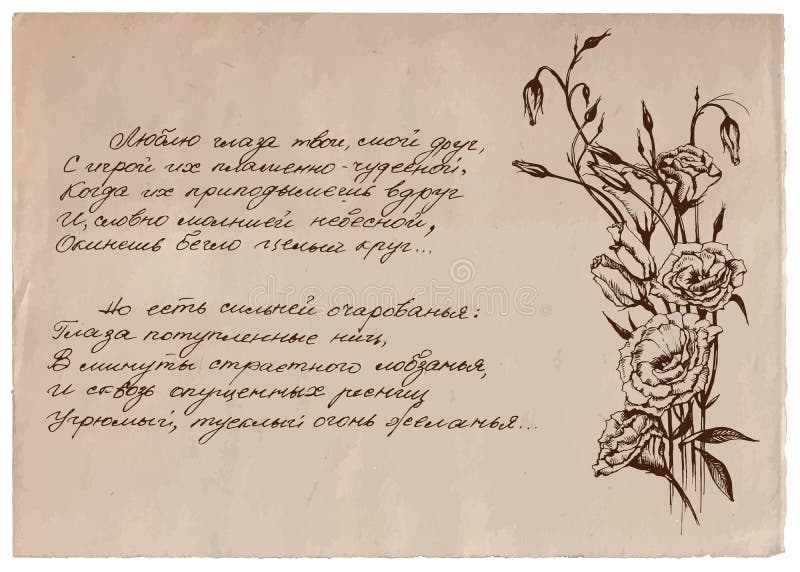 Люблю глаза твои, мой друг,
С игрой их пламенно-чудесной,
Когда их приподымешь вдруг
И, словно молнией небесной,
Окинешь бегло целый круг...
Но есть сильней очарованья:
Глаза потупленные ниц,
В минуты страстного лобзанья,
И сквозь опущенных ресниц
Угрюмый, тусклый огонь желанья...
dreamstime